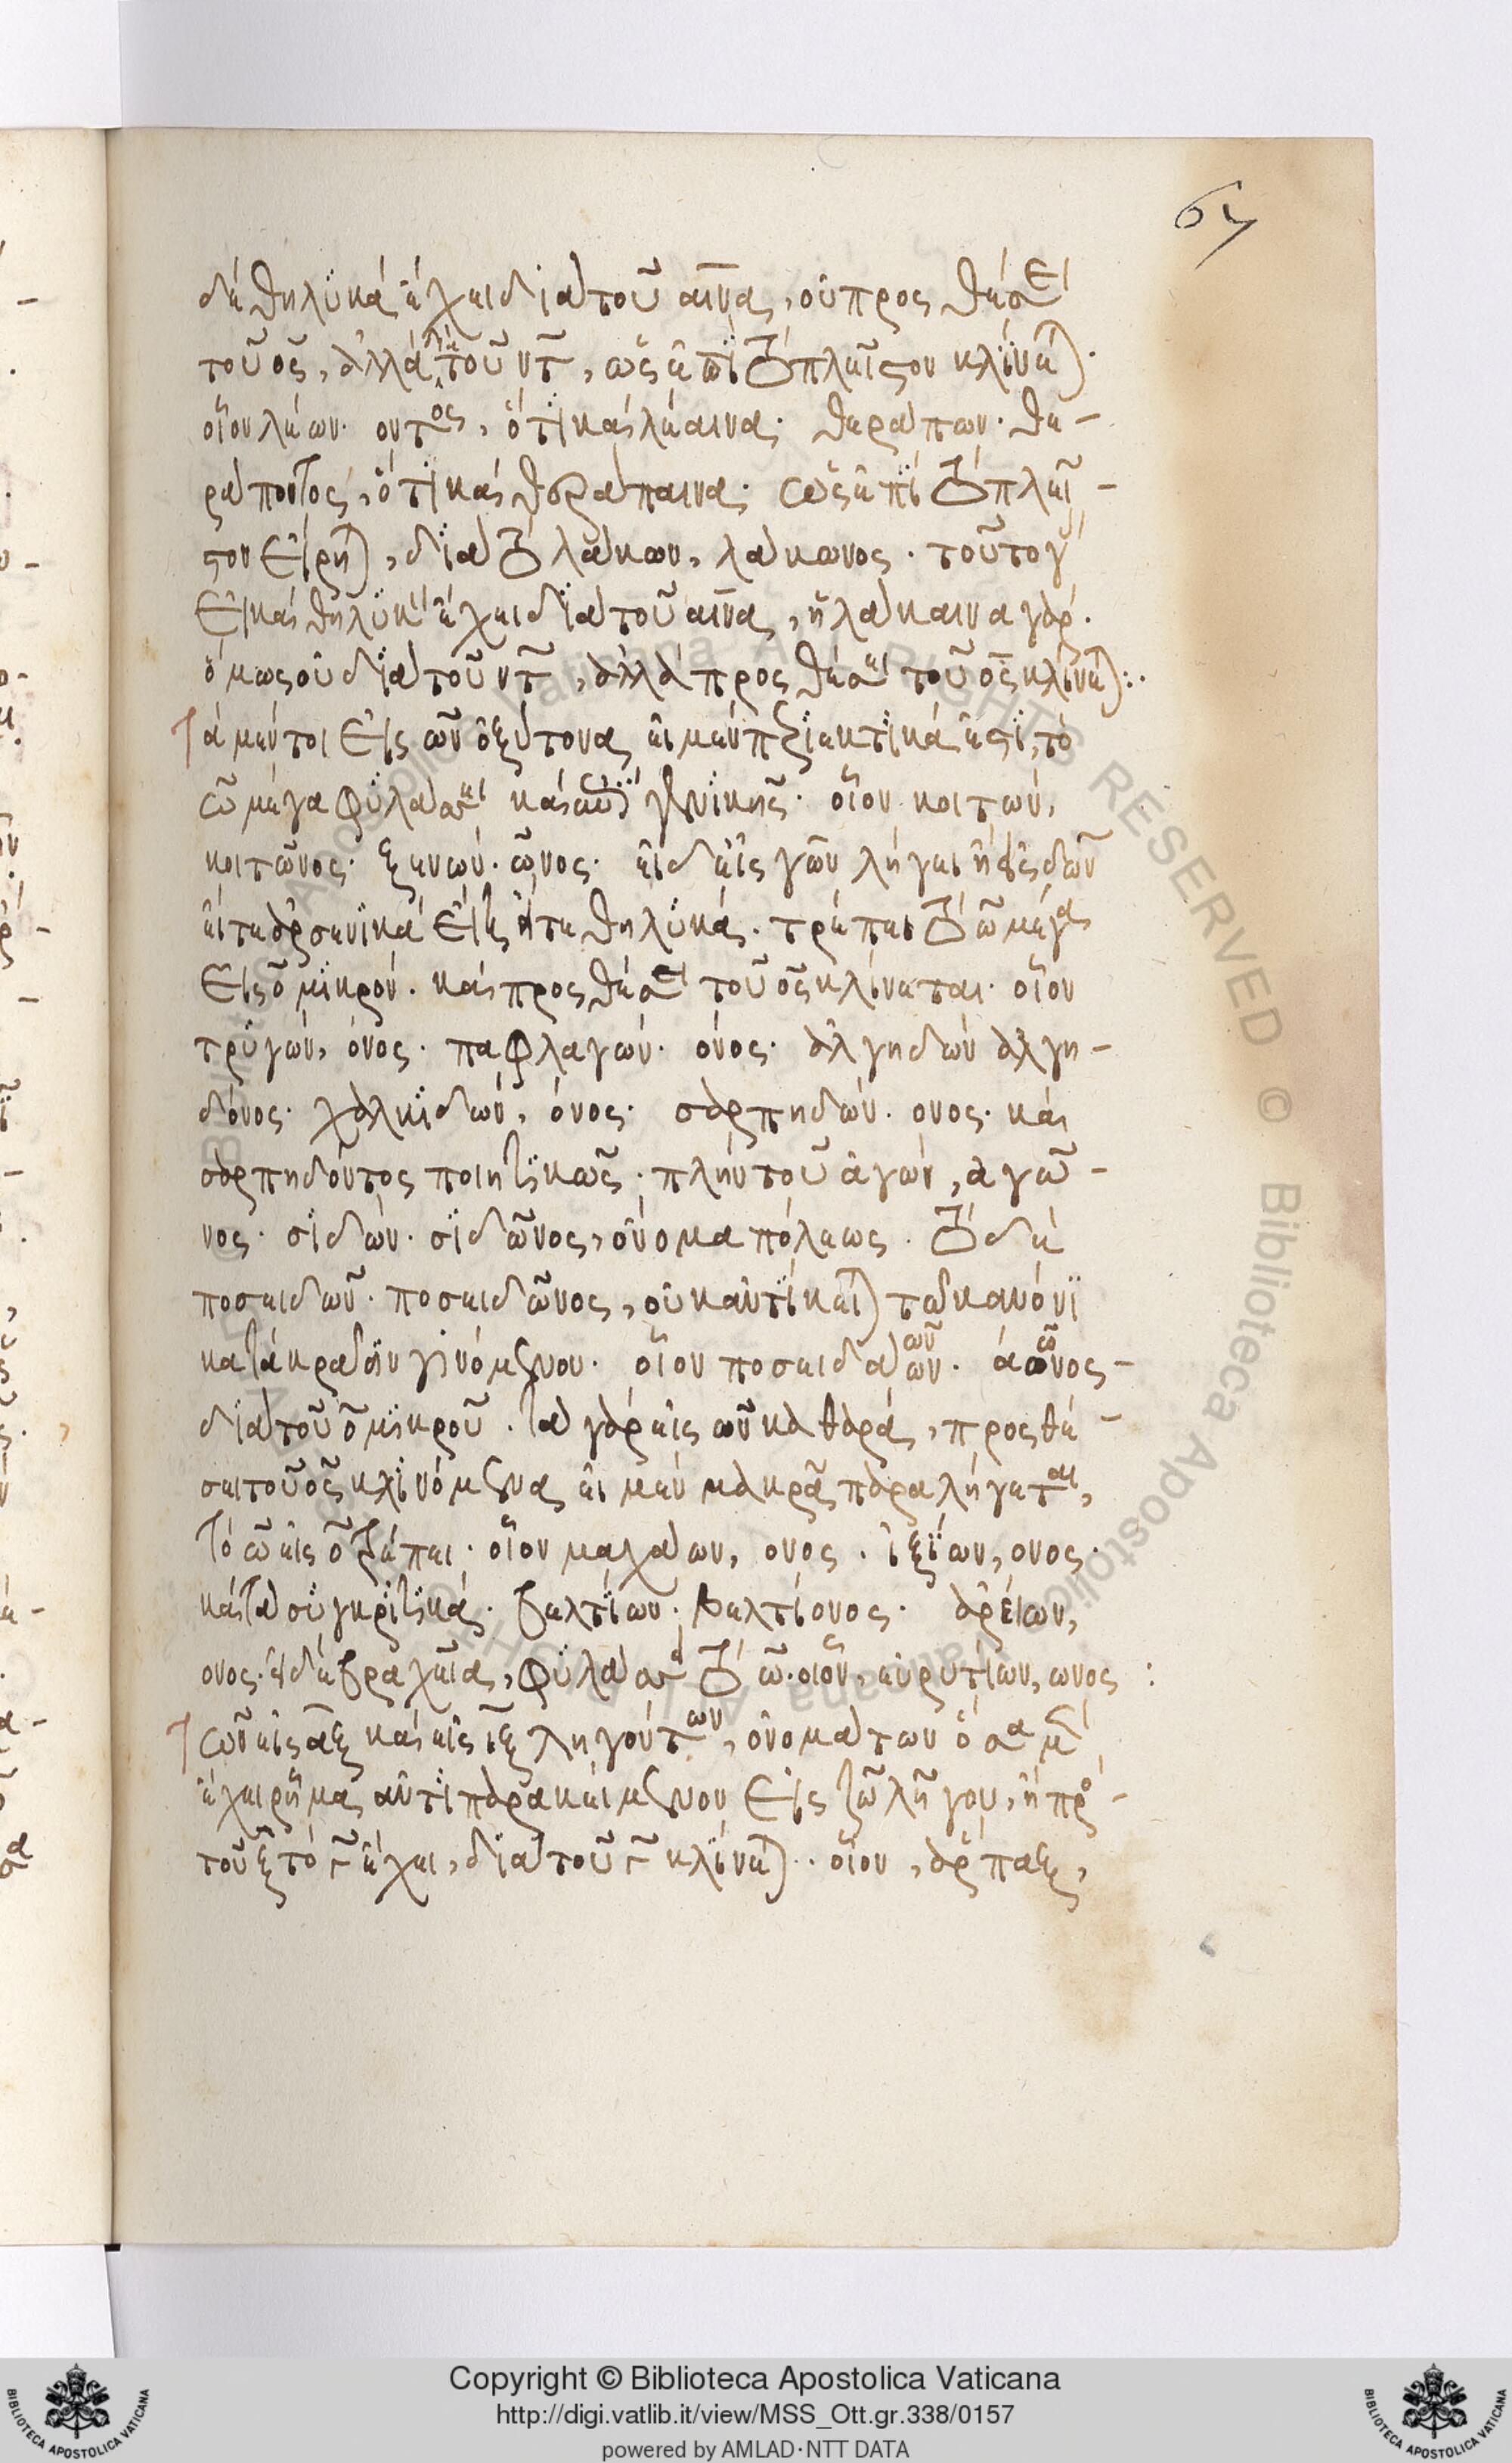 67
δὲ θηλυκὰ ἔχει διὰ τοῦ αινας, οὐ προς θέσει
τοῦ ος, ἀλλὰ διὰ τοῦ ντ, ὡς ἐπὶ τὸ πλεῖστον κλίνεται.
οἷον λέων. οντος, ὅτι καὶ λέαινα. θεράπων. θε-
ράποντος, ὅτι καὶ θεράπαινα. ὡς ἐπὶ τὸ πλεῖ-
στον εἴρηται, διὰ τὸ λάκων, λάκωνος. τοῦτο γὰρ
εἰ καὶ θηλυκὸν ἔχει διὰ τοῦ αινας, ἡ λάκαινα γάρ.
ὅμως οὐ διὰ τοῦ ντ, ἀλλὰ προς θέσει τοῦ ος κλίνεται:.
Τὰ μέντοι εἰς ων ὀξύτονα, εἰ μὲν περιεκτικά ἐστι, τὸ
ω μέγα φυλάσσει καὶ ἐπὶ γενικῆς. οἷον κοιτών,
κοιτῶνος. ξενών. ῶνος. εἰ δ' εἰς γων λήγει ἢ εἰς δων
εἴτε ἀρσενικὰ εἶεν εἴτε θηλυκά. τρέπει τὸ ω μέγα
εἰς ο μικρόν. καὶ προς θέσει τοῦ ος κλίνεται. οἷον
τρυγών, όνος. παφλαγών. όνος. ἀλγηδών ἀλγη-
δόνος. χαλκιδών, όνος. σαρπηδών. ονος. καὶ
σαρπηδόντος ποιητικῶς. πλὴν τοῦ ἀγών, ἀγῶ-
νος. σιδών. σιδῶνος, ὄνομα πόλεως. τὸ δὲ
ποσειδῶν. ποσειδῶνος, οὐκ ἀντίκειται τῷ κανόνι
κατὰ κρᾶσιν γινόμενον. οἷον ποσειδάων. άωνος-
διὰ τοῦ ο μικροῦ. τὰ γὰρ εἰς ων καθαρά, προς θέ-
σει τοῦ ος κλινόμενα, εἰ μὲν μακρᾷ παραλήγεται,
τὸ ω εἰς ο τρέπει. οἷον μαχάων, ονος. ἰξίων, ονος.
καὶ τὰ συγκριτικά. βελτίων. βελτίονος. ἀρείων,
ονος. εἰ δὲ βραχεῖα, φυλάσσει τὸ ω. οἷον, εὐρυτίων, ωνος :
Τῶν εἰς αξ καὶ εἰς ιξ ληγόντων, ὀνομάτων ὅσα μὲν
ἔχει ῥῆμα ἀντιπαρακείμενον εἰς ζω λῆγον, ἢ πρὸ-
τοῦ ξ τὸ γ ἔχει, διὰ τοῦ γ κλίνεται. οἷον, ἅρπαξ,
Copyright © Biblioteca Apostolica Vaticana
http://digi.vatlib.it/view/MSS_Ott.gr.338/0157
powered by AMLAD·NTT DATA